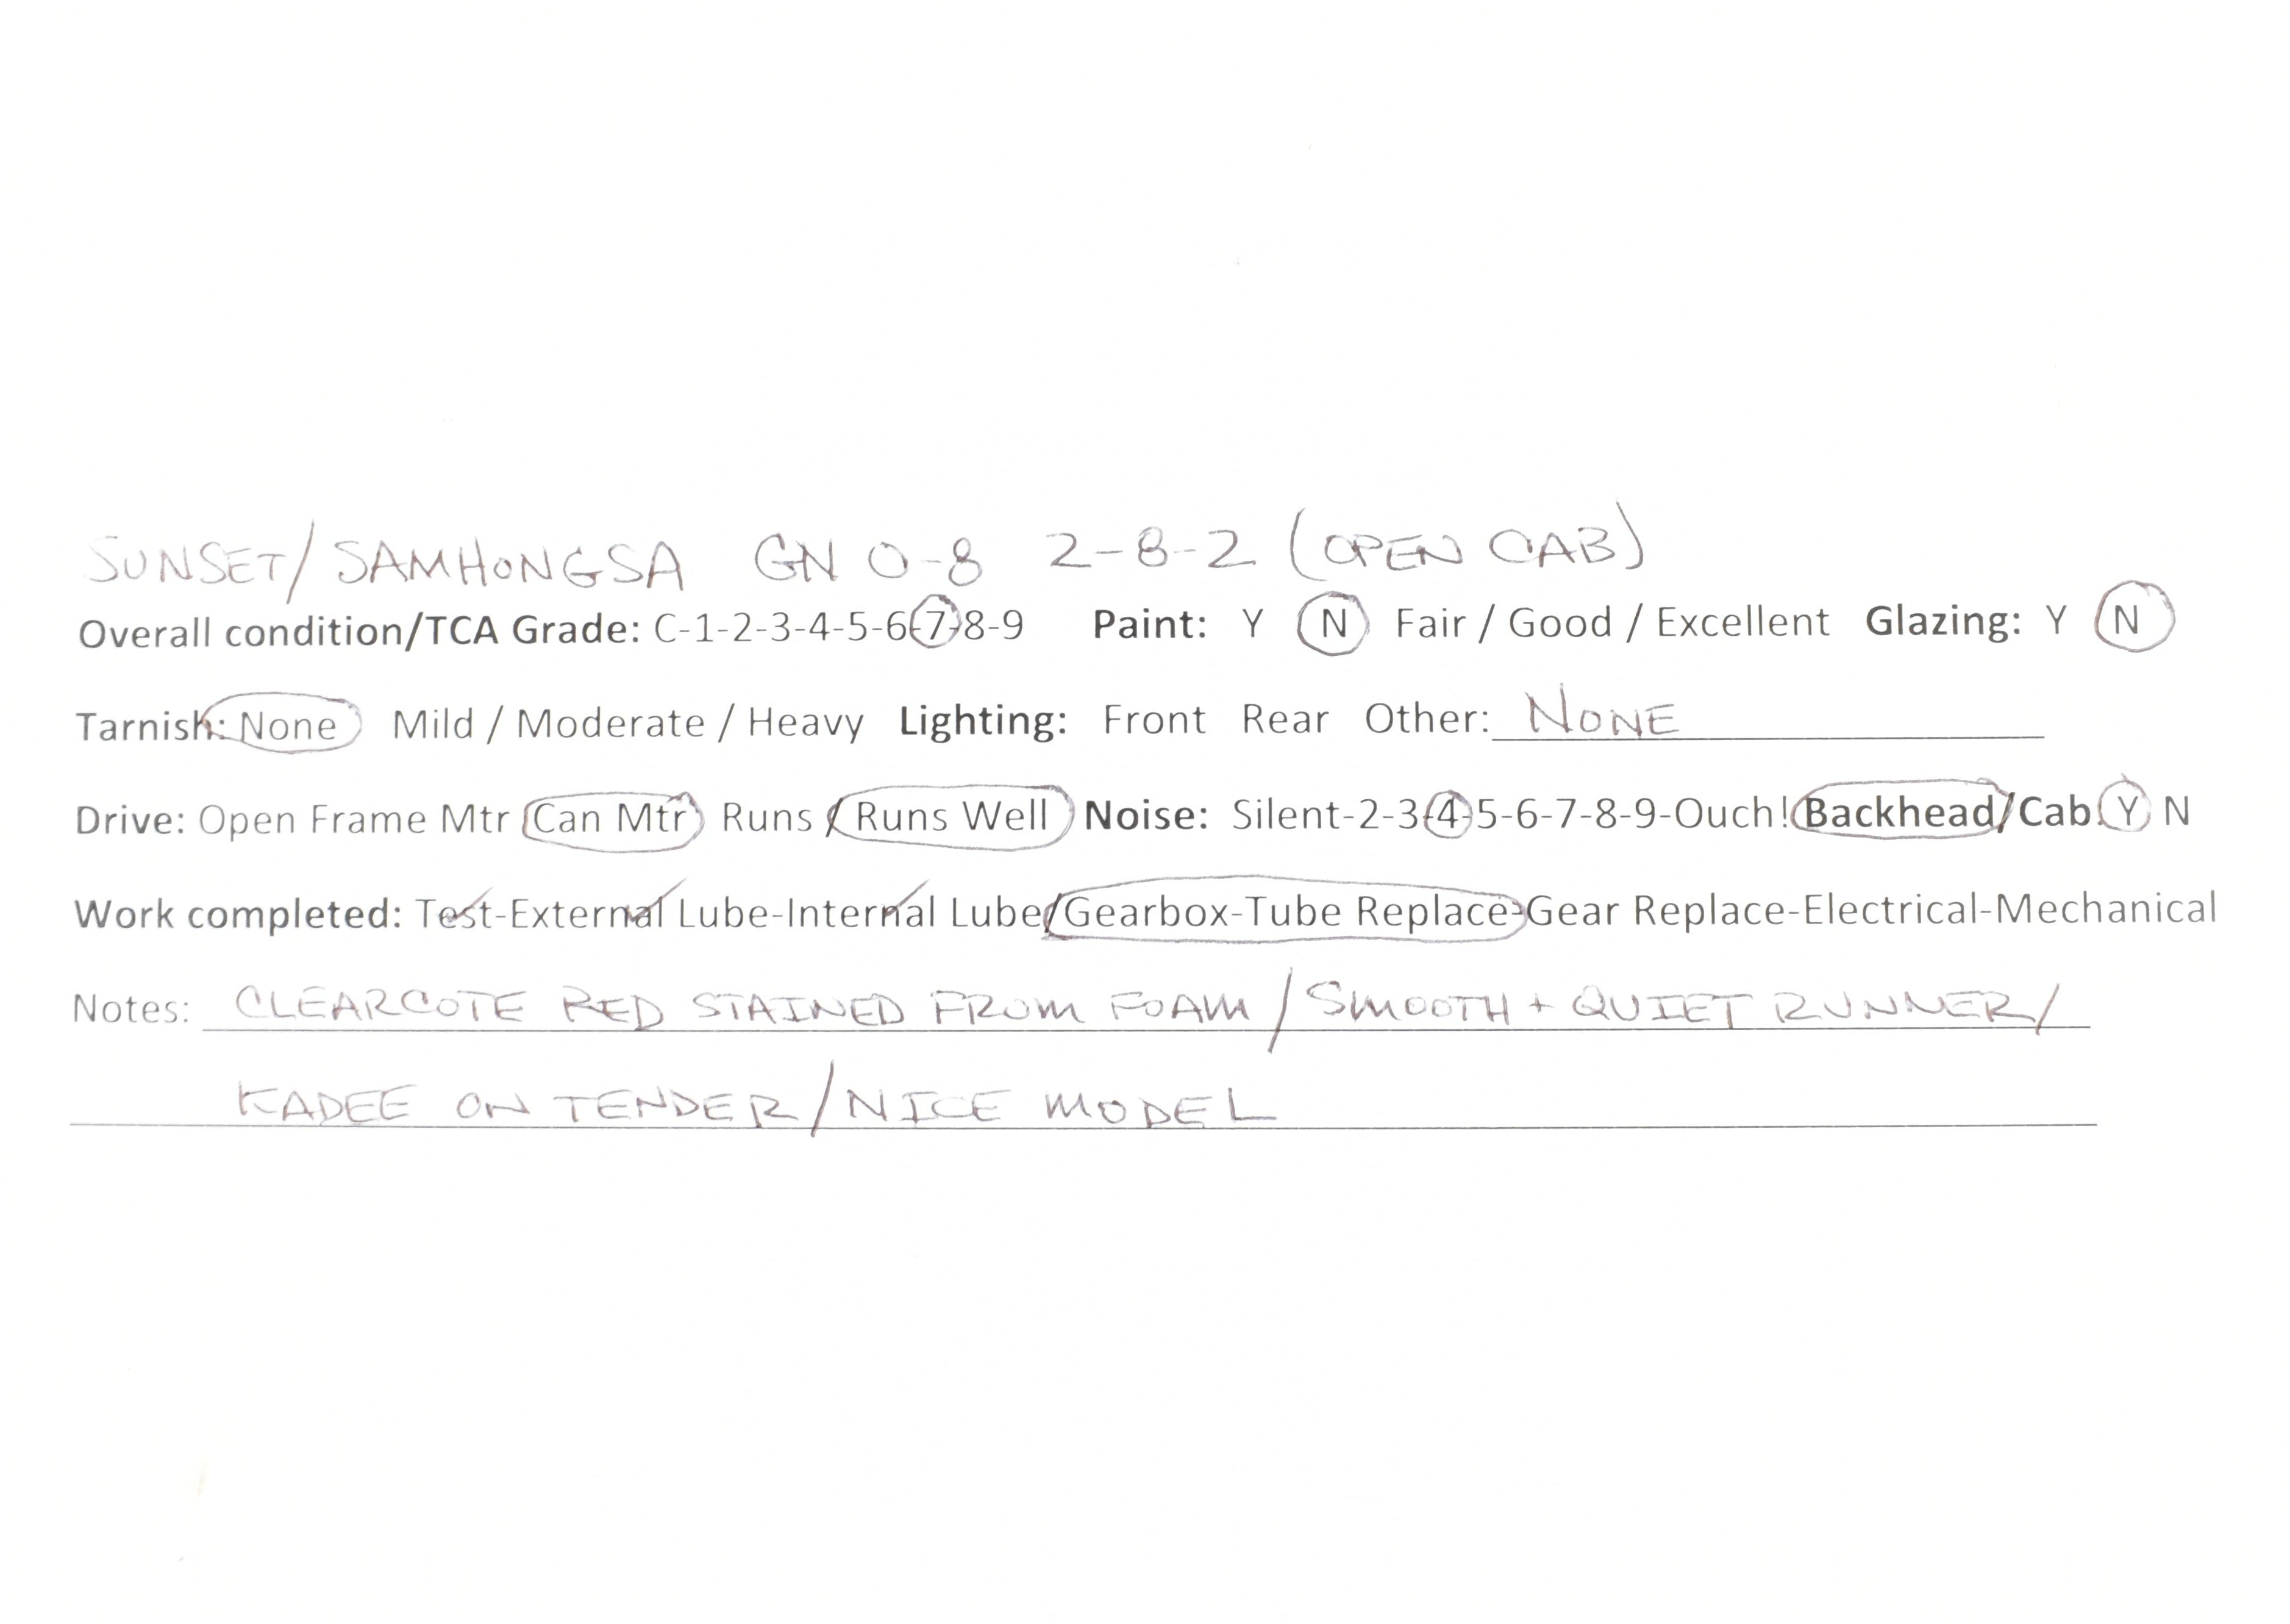 SUNSET/SAMHONGSA GN O-8 2-8-2 (OPEN CAB)
Overall condition/TCA Grade: C-1-2-3-4-5-6-7-8-9 Paint: Y N Fair / Good / Excellent Glazing: Y N
Tarnish: None Mild / Moderate / Heavy Lighting: Front Rear Other: NONE
Drive: Open Frame Mtr Can Mtr Runs / Runs Well Noise: Silent-2-3-4-5-6-7-8-9-Ouch! Backhead/Cab: Y N
Work completed: Test-External Lube-Internal Lube/Gearbox-Tube Replace-Gear Replace-Electrical-Mechanical
Notes: CLEARCOTE RED STAINED FROM FOAM / SMOOTH + QUIET RUNNER/
KADEE ON TENDER/NICE MODEL